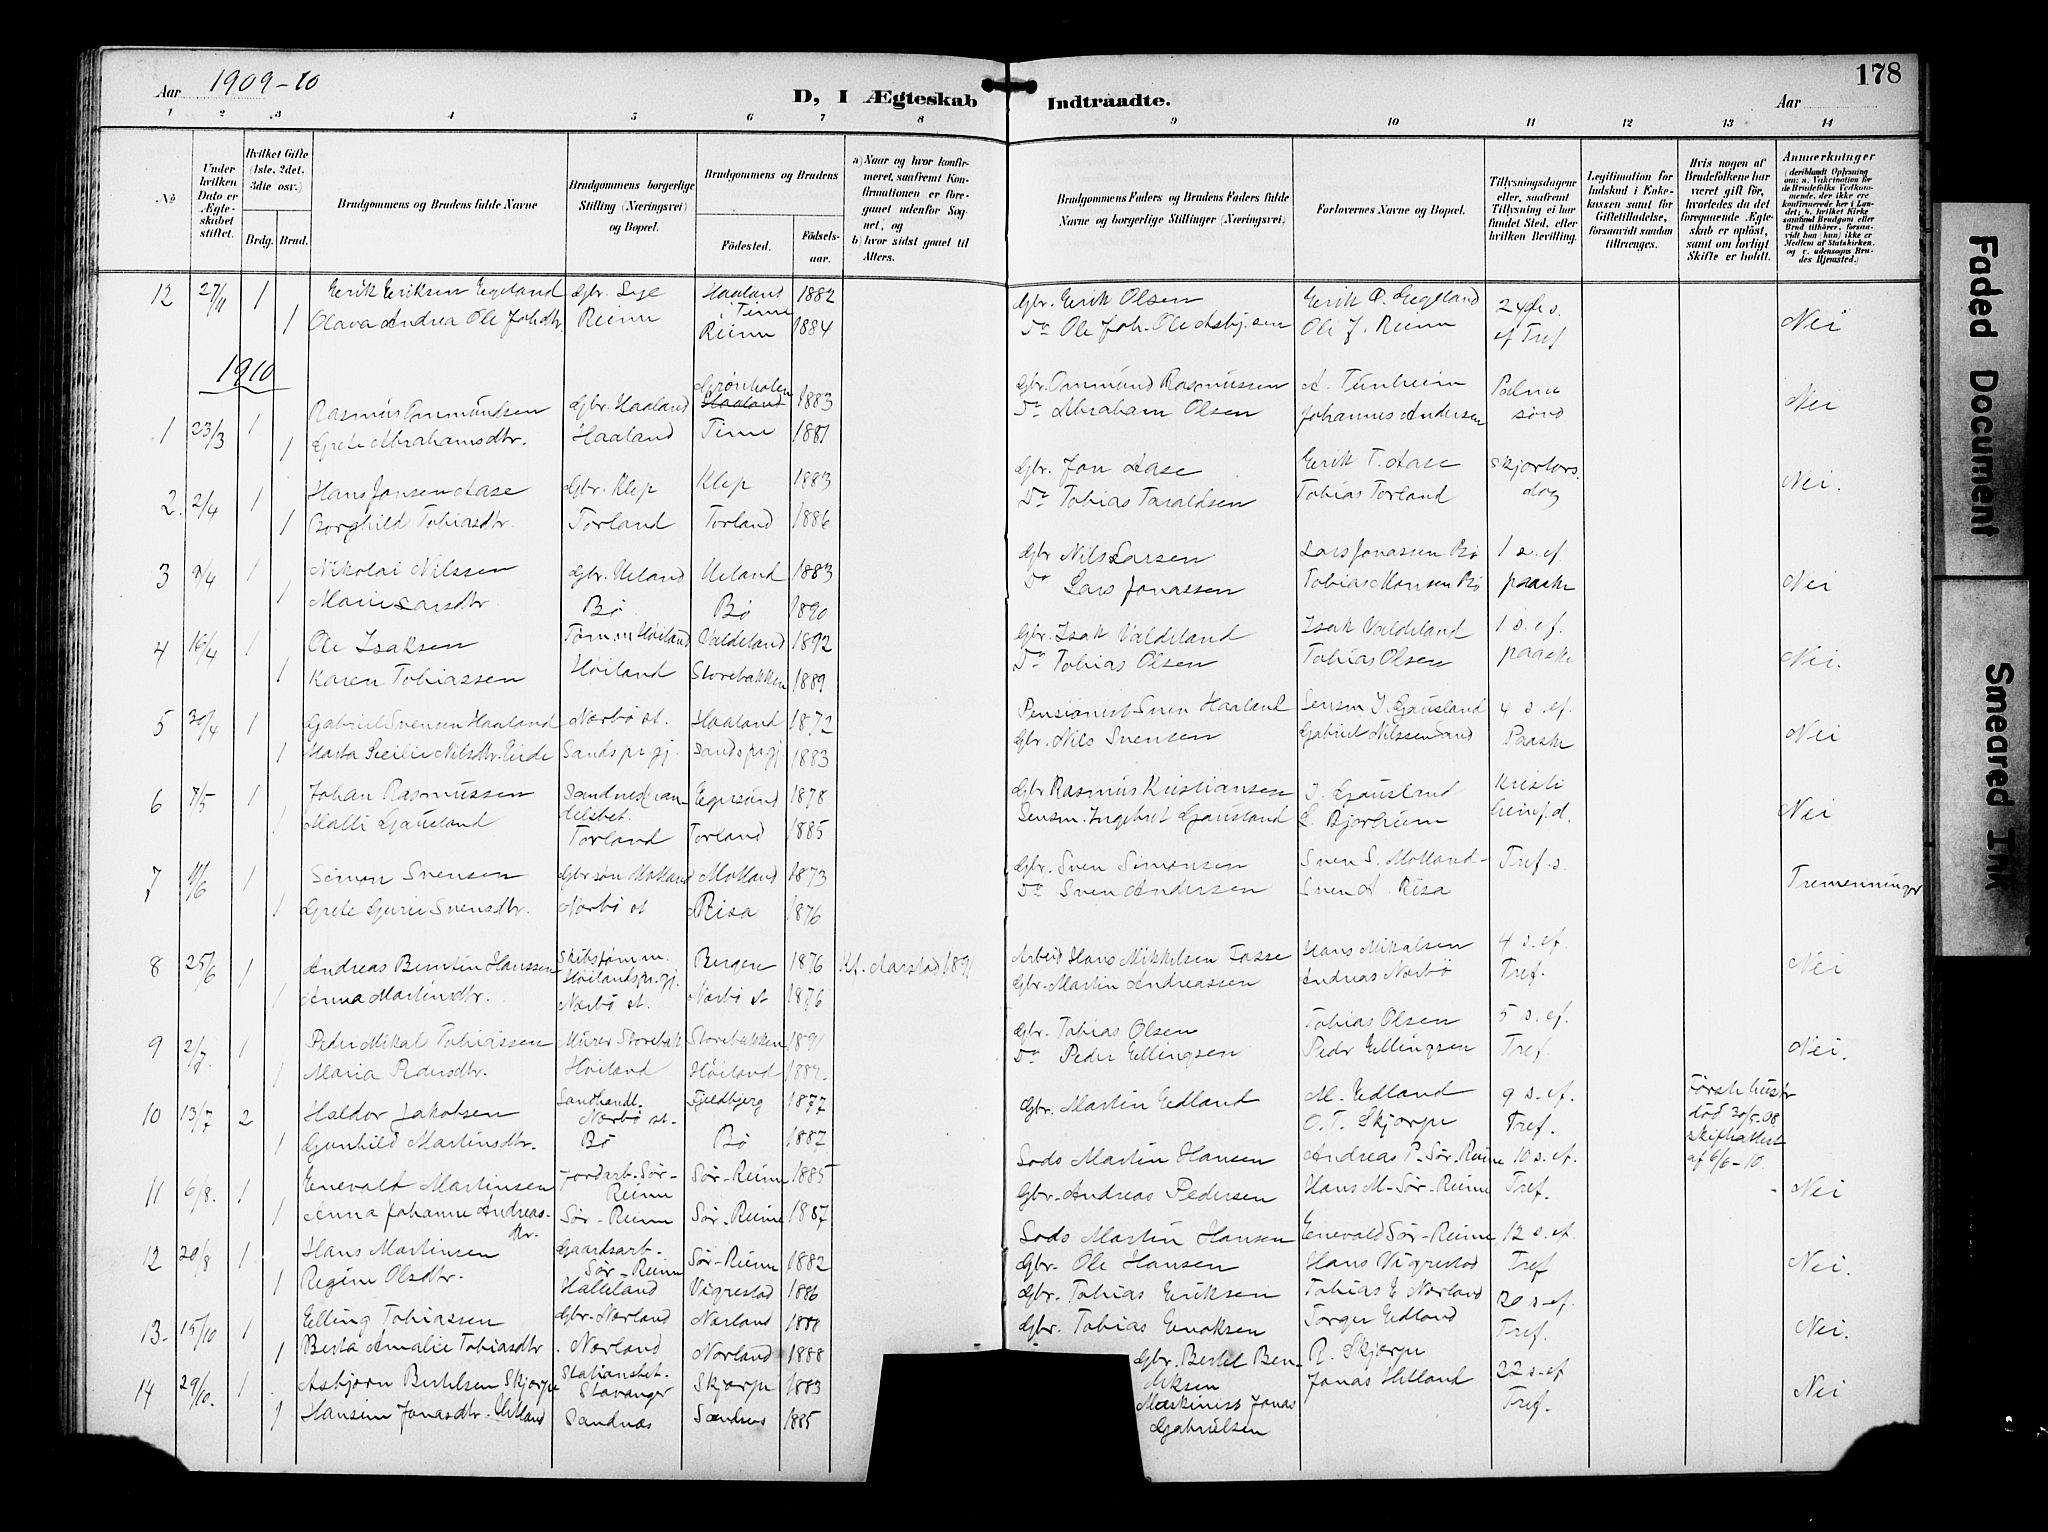 Aar 1909-10
D, I Ægteskab Indtraadte.
Aar
178
1 2 3 4 5 6 7 8 9 10 11 12 13 14
No
Under hvilken Dato er Ægteskabet stiftet.
Hvilket Gifte (1ste, 2det, 3die osv.)
Brdg. Brud.
Brudgommens og Brudens fulde Navne
Brudgommens borgerlige Stilling (Næringsvei) og Bopæl.
Brudgommens og Brudens
Fødested.
Fødsels-aar.
a) Naar og hvor konfirmeret, saafremt Konfirmationen er foregaaet udenfor Sognet, og
b) hvor sidst gaaet til Alters.
Brudgommens Faders og Brudens Faders fulde Navne og borgerlige Stillinger (Næringsvei).
Forlovernes Navne og Bopæl.
Tillysningsdagene eller, saafremt Tillysning ei har fundet Sted, efter hvilken Bevilling.
Legitimation for Indskud i Enkekassen samt for Giftetilladelse, forsaavidt saadan tiltrænges.
Hvis nogen af Brudefolkene har været gift før, hvorledes da det foregaaende Ægteskab er opløst, samt om lovligt Skifte er holdt.
Anmærkninger
12 27/11 1 Eerik Eeriksen Egeland Gbr. Lye Haaland i Time 1882 Gbr. Eerik Olsen Eerik O. Egeland 24de s. Nei
1 Olava Andrea Ole Johdtr. Reime Reime 1884 Do Ole Joh. Ole Asbj.sen Ole J. Reime ef Tref
1910
1 23/3 1 Rasmus Ommundsen Gbr. Haaland Grønhalen Haaland 1883 Gbr. Ommund Rasmussen A. Tunheim Palme Nei
1 Grete Abrahamsdtr. Haaland Time 1881 Do Abraham Olsen Johannes Andersen sønd
2. 2/4 1 Hans Jonsen Aase Gbr. Klep Klep 1883 Gbr. Jon Aase Eerik T. Aase Skjærtors. Nei.
1 Borghild Tobiasdtr. Torland Torland 1886 Do Tobias Taraldsen Tobias Torland dag
3 /4 1 Nikolai Nilssen Gbr. Ueland Ueland 1883 Gbr Nils Larsen Lars Jonassen Bø 1 s. ef Nei
1 Marie Larsdtr. Bø Bø 1890 Do Lars Jonassen Tobias Hansen Bø paaske
4 16/4 1 Ole Isaksen Tømm. Høiland Valdeland 1892 Gbr. Isak Valdeland Isak Valdeland 1 s. ef. Nei.
1 Karen Tobiassen Høiland Storebakken 1889 Do Tobias Olsen Tobias Olsen paaske
5 30/4 1 Gabriel Svensen Haaland Nærbø st. Haaland 1872 Pensionist Sven Haaland Lensm I. Gausland 4 s. ef. Nei
1 Marta Secilie Nilsdtr. Eide Sands pr.gj. Sands pr.gj 1883 Gbr. Nils Svensen Gabriel Nilssen Paaske
6 7/5 1 Johan Rasmussen Sandnes han- Egersund 1878 Gbr Rasmus Kristiansen I. Gausland Kristi Nei
delsbet.
1 Malli Gausland Torland Torland 1885 Lensm. Ingebret Gausland L. Bjorheim himf. d.
7 11/6 1 Simon Svensen Gbrsøn Motland Motland 1873 Gbr. Sven Simonsen Sven S. Motland Tref s. Tremenninger
1 Grete Gurie Svensdtr. Nærbø st Risa 1876 Do Sven Andersen Sven A. Risa
8 25/6 1 Andreas Berntin Hanssen Skibstømm. Høilandspr.gj. Bergen 1876 Kf. Aarstad 1891 Arbeid Hans Mikkelsen Fosse Hans Mikalsen 4 s. ef. Nei
1 Anna Martinsdtr. Nærbø st. Nærbø st 1876 Gbr. Martin Andreassen Andreas Nærbø Tref.
9 2/7. 1 Peder Mikal Tobiassen Murer Storebak. Storebakken 1891 Gbr. Tobias Olsen Tobias Olsen 5 s. ef. Nei.
1 Maria Pedersdtr. Høiland Høiland 1882. Do Peder Ellingsen Peder Ellingsen Tref.
10 13/7 2 Haldor Jakobsen Landhandl. Nærbø st. Fjeldbjerg 1877 M. Edland 9 s. ef. Første hustr
1 Gunhild Martinsdtr. Bø Bø 1887 Gbr. Martin Edland O. T. Skjærpe Tref. død 30/5-08 skifteattest af 6/6-10.
11 6/8. 1 Enevald Martinsen Jordarb. Sør-Reime Sør-Reime 1885 Sods Martin Hansen Andreas P. Sør-Reime 10 s. ef. Nei
1 Anna Johanne Andreas-dtr. Sør-Reime Sør-Reime 1887 Gbr. Andreas Pedersen Hans M- Sør-Reime Tref.
12 20/8 1 Hans Martinsen Gaardsarb- Sør-Reime Sør-Reime 1882 Sods Martin Hansen Enevald Sør-Reime 12 s. ef. Nei.
1 Regine Olsdtr. Halleland Vigrestad 1886 Gbr. Ole Hansen Hans Vigrestad Tref
13- 15/10 1 Elling Tobiassen Gbr. Nærland Nærland 1888 Gbr. Tobias Eeriksen Tobias E Nærland 20 s. ef. Nei.
1 Berta Amalie Tobiasdtr. Nærland Nærland 1888 Gbr. Tobias Enoksen Torger Edland Tref.
14 29/10. 1 Asbjørn Bertelsen Skjærpe Stationsbet. Stavanger Skjærpe 1883 Gbr. Bertel Ben-diksen R. Skjærpe 22 s. ef Nei
1 Hansine Jonasdtr. Hetland Sandnæs Sandnes 1885 Maskinist Jonas Gabrielsen Jonas Hetland Tref.
Faded Document
Smeared Ink